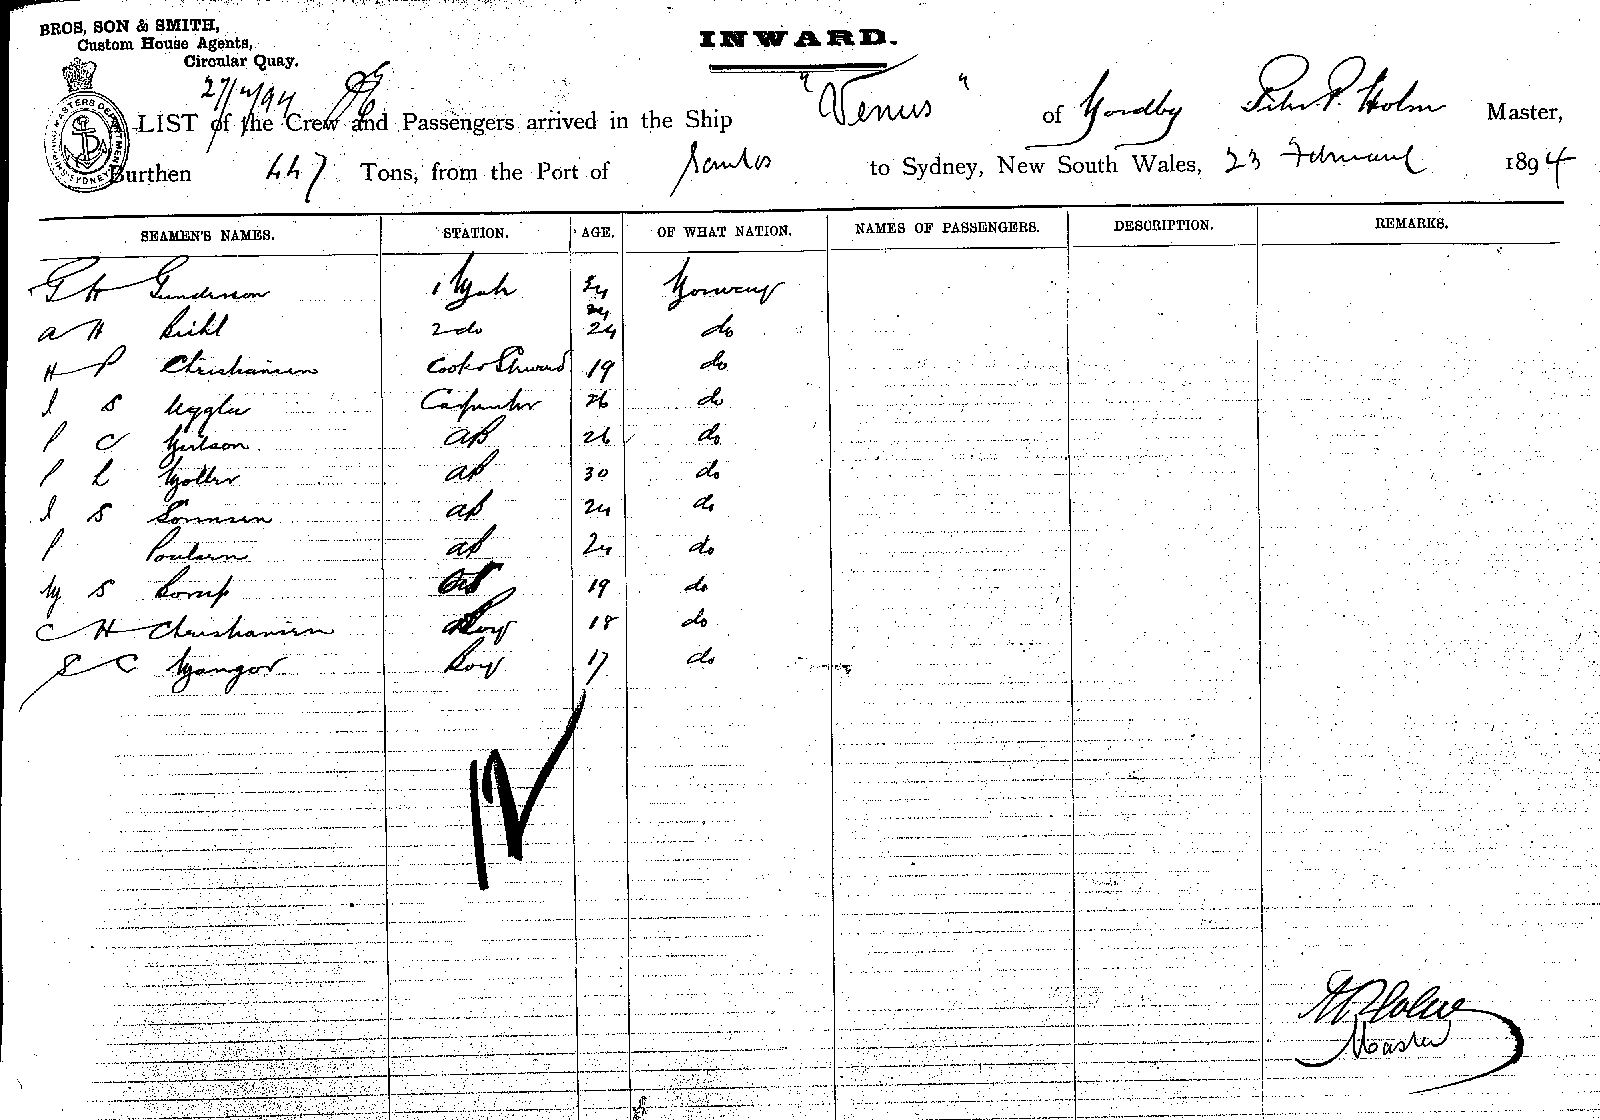 BROS, SON & SMITH,
Custom House Agents,
Circular Quay.
INWARD.
27/2/94
LIST of the Crew and Passengers arrived in the Ship "Venus" of Nordby P. Holm Master,
Burthen 447 Tons, from the Port of Santos to Sydney, New South Wales, 23 February 1894
SEAMEN'S NAMES. STATION. AGE. OF WHAT NATION. NAMES OF PASSENGERS. DESCRIPTION. REMARKS.
G H Gunderson 1 Mate 24 Norway
24
a H 2 do 24 do
H P Christiansen Cook & Steward 19 do
I S Carpenter 26 do
P C AB 26 do
P L Moller AB 30 do
I S Sorensen AB 24 do
P Poulsen AB 24 do
M S Borup OS 19 do
C H Christiansen Boy 18 do
S C Mangor Boy 17 do
12
Holm
Master